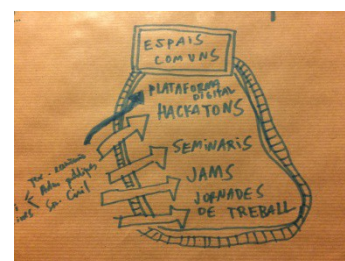 ESPAIS
COMUNS
PLATAFORMA
DIGITAL
HACKATONS
SEMINARIS
JAMS
JORNADES
DE TREBALL
Civil